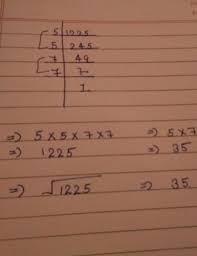 5 | 1225
5 | 245
7 | 49
7 | 7
1
=) 5 x 5 x 7 x 7 =) 5 x 7
=) 1225 =) 35
=) √1225 =) 35